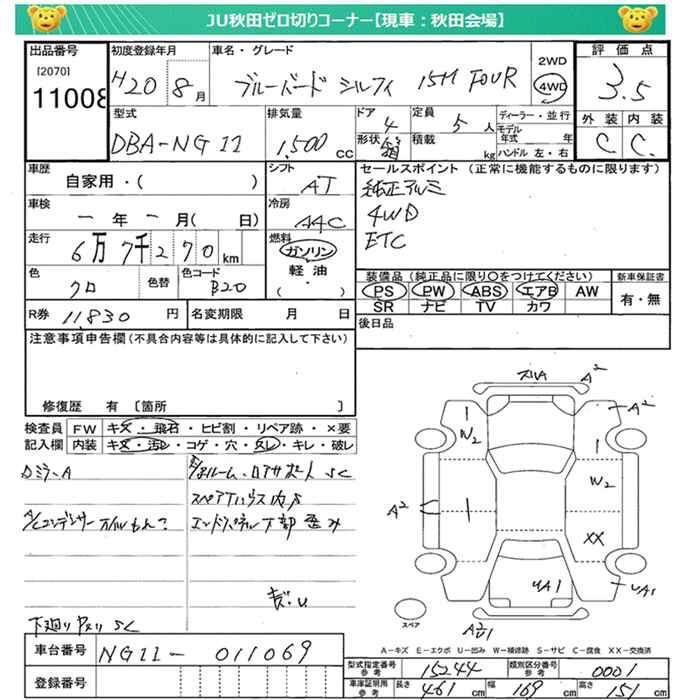 JU秋田ゼロ切りコーナー【現車：秋田会場】
出品番号 初度登録年月 車名・グレード 2WD 評価点
[2070]
11008 H20 8月 ブルーバード シルフィ 15M FOUR 4WD 3.5
外装 内装
C C
型式 排気量 ドア 定員 ディーラー・並行
DBA-NG11 1,500 CC 4 5人 モデル年式 年
形状 箱 積載 kg ハンドル 左・右
車歴 シフト セールスポイント (正常に機能するものに限ります)
自家用・( ) AT 純正アルミ
車検 冷房 4WD
一年一月( 日) AAC ETC
走行 燃料
6万7千270km ガソリン
軽油
・( )
装備品 (純正品に限り○をつけてください) 新車保証書
PS PW ABS エアB AW 有・無
SR ナビ TV カワ
色 色替 色コード
クロ B20
後日品
R券 11,830円 名変期限 月 日
注意事項申告欄 (不具合内容等は具体的に記入して下さい)
修復歴 有 〔箇所 〕
検査員 FW キズ・飛石・ヒビ割・リペア跡・×要
記入欄 内装 キズ・汚レ・コゲ・穴・スレ・キレ・破レ
ロミラーA
スペアタハウス内サ
A/Cコンデンサー オイルもれ?
エンドパネル下部歪み
下廻り
スレA A2
A2
W2
W2
A2
XX
UA1
UA1
スペア
A-キズ E-エクボ U-凹み W-補修跡 S-サビ C-腐食 XX-交換済
車台番号 NG11-011069
登録番号
型式指定番号 参考 15244 類別区分番号 参考 0001
車庫証明用 参考 長さ 461cm 幅 169cm 高さ 151cm